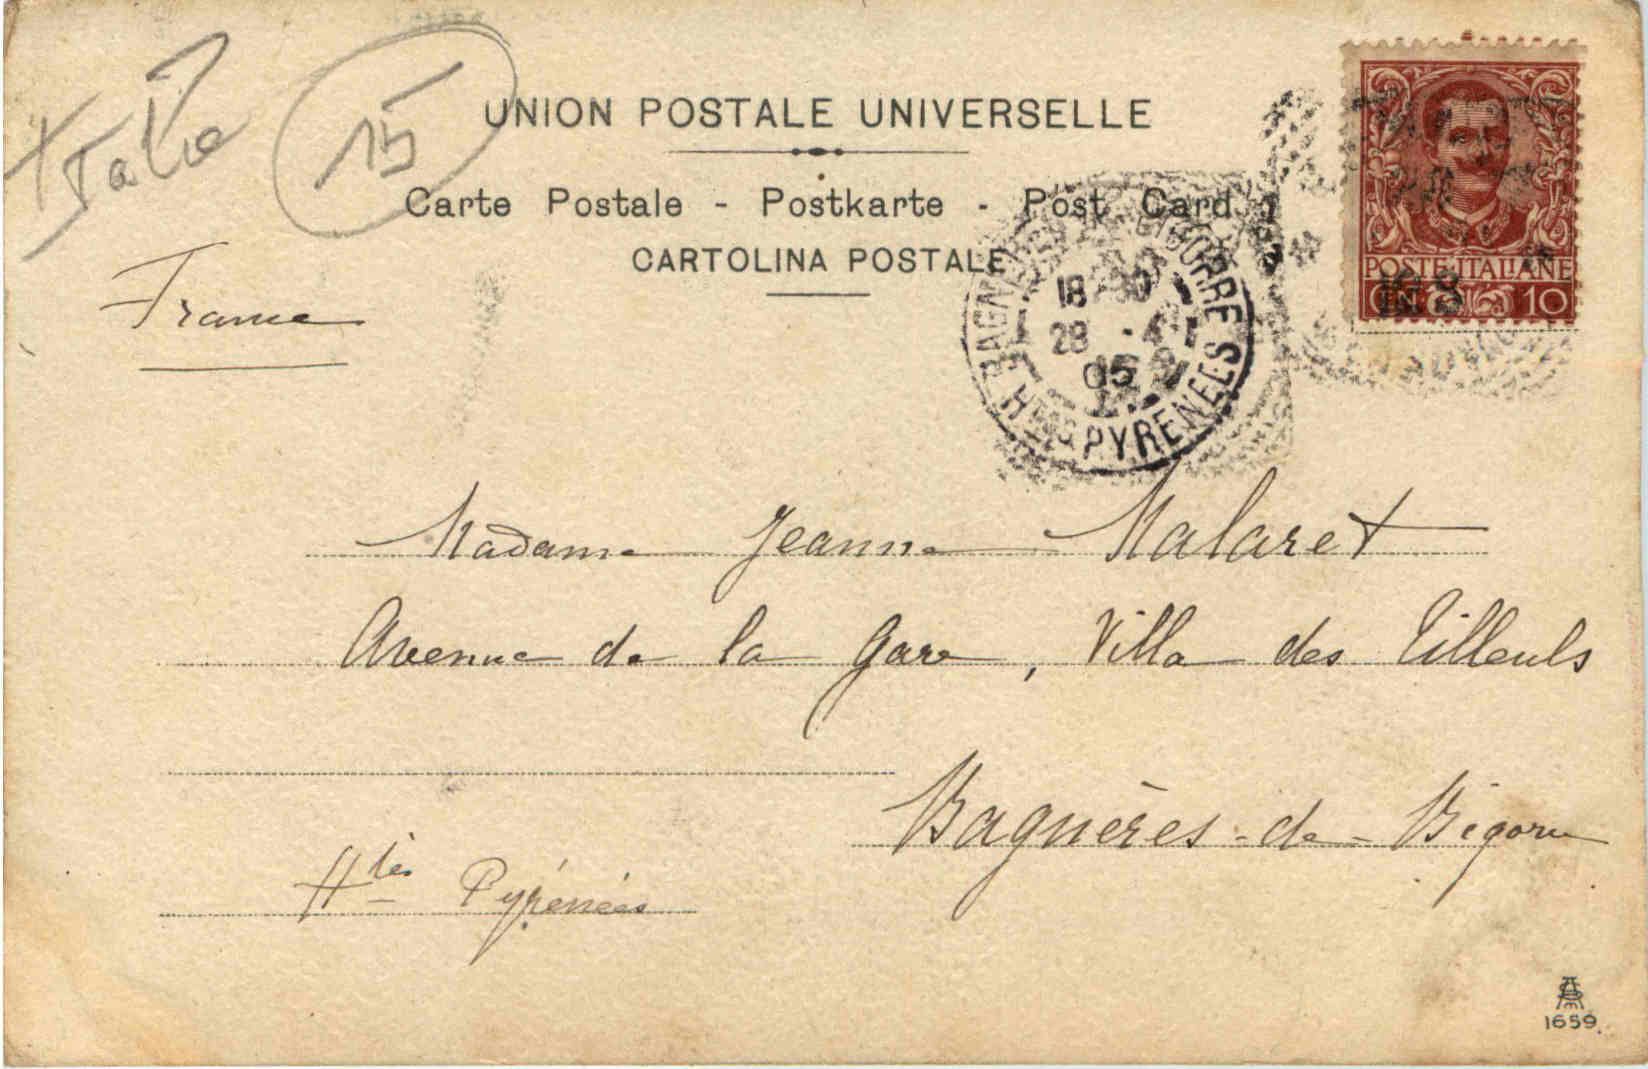 Italie
15
UNION POSTALE UNIVERSELLE
Carte Postale - Postkarte - Post Card
CARTOLINA POSTALE
POSTE ITALIANE
CEN 10
BAGNERES DE BIGORRE
18 30
28 - 4
05
HTES PYRENEES
France
Madame Jeanne Malaret
Avenue de la Gare, Villa des Tilleuls
Bagnères-de-Bigorre
Htes Pyrénées
1659